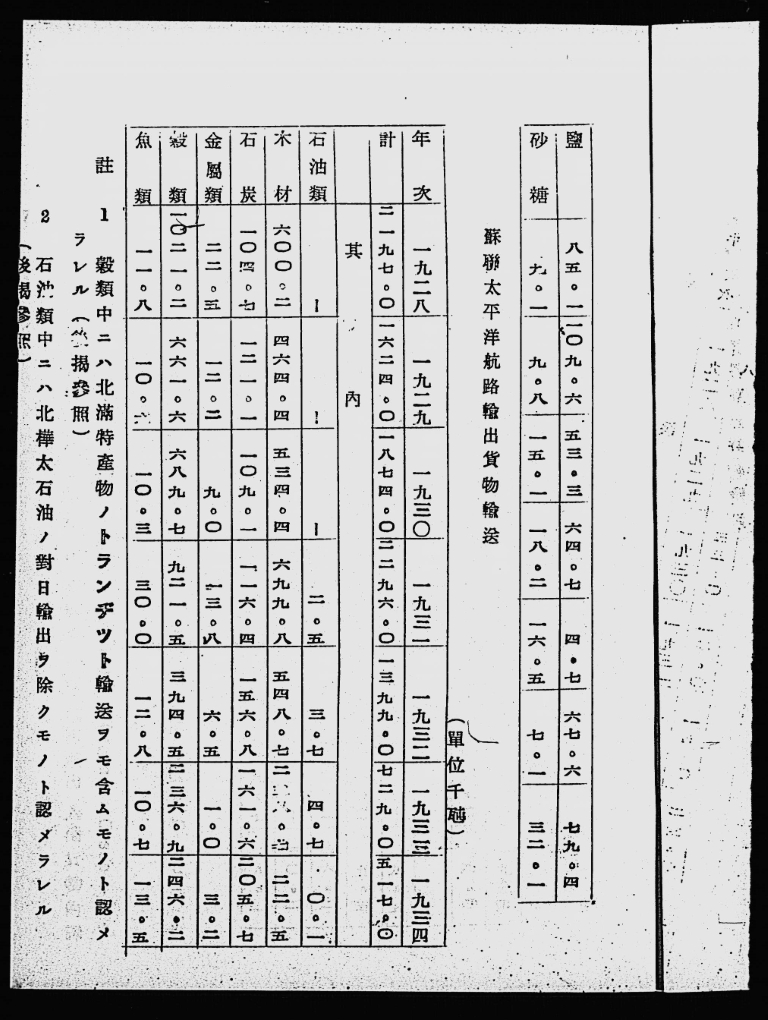 鹽 八五・一 一〇九・六 五三・三 六四・七 四・七 六七・六 七九・四
砂糖 九・一 九・八 一五・一 一八・二 一六・五 七・一 三二・一
蘇聯太平洋航路輸出貨物輸送
(單位千噸)
年次 一九二八 一九二九 一九三〇 一九三一 一九三二 一九三三 一九三四
計 二一九七・〇 一六二四・〇 一八七四・〇 二二九六・〇 一三九九・〇 七二九・〇 五一七・〇
其 內
石油類 ー ー ー 二・五 三・七 四・七 〇・一
木材 六〇〇・二 四六四・四 五三四・四 六九九・八 五四八・七 二二・五
石炭 一〇四・七 一二一・一 一〇九・一 一一六・四 一五六・八 一六一・六 二〇五・七
金屬類 二二・五 一二・二 九・〇 一三・八 六・五 一・〇 三・二
穀類 一〇二一・二 六六一・六 六八九・七 九二一・五 三九四・五 二三六・九 二四六・二
魚類 一一・八 一〇・六 一〇・三 三〇・〇 一二・八 一〇・七 一三・五
註 1 穀類中ニハ北滿特產物ノトランヂツト輸送ヲモ含ムモノト認メ
ラレル(後揭參照)
2 石油類中ニハ北樺太石油ノ對日輸出ヲ除クモノト認メラレル
(後揭參照)